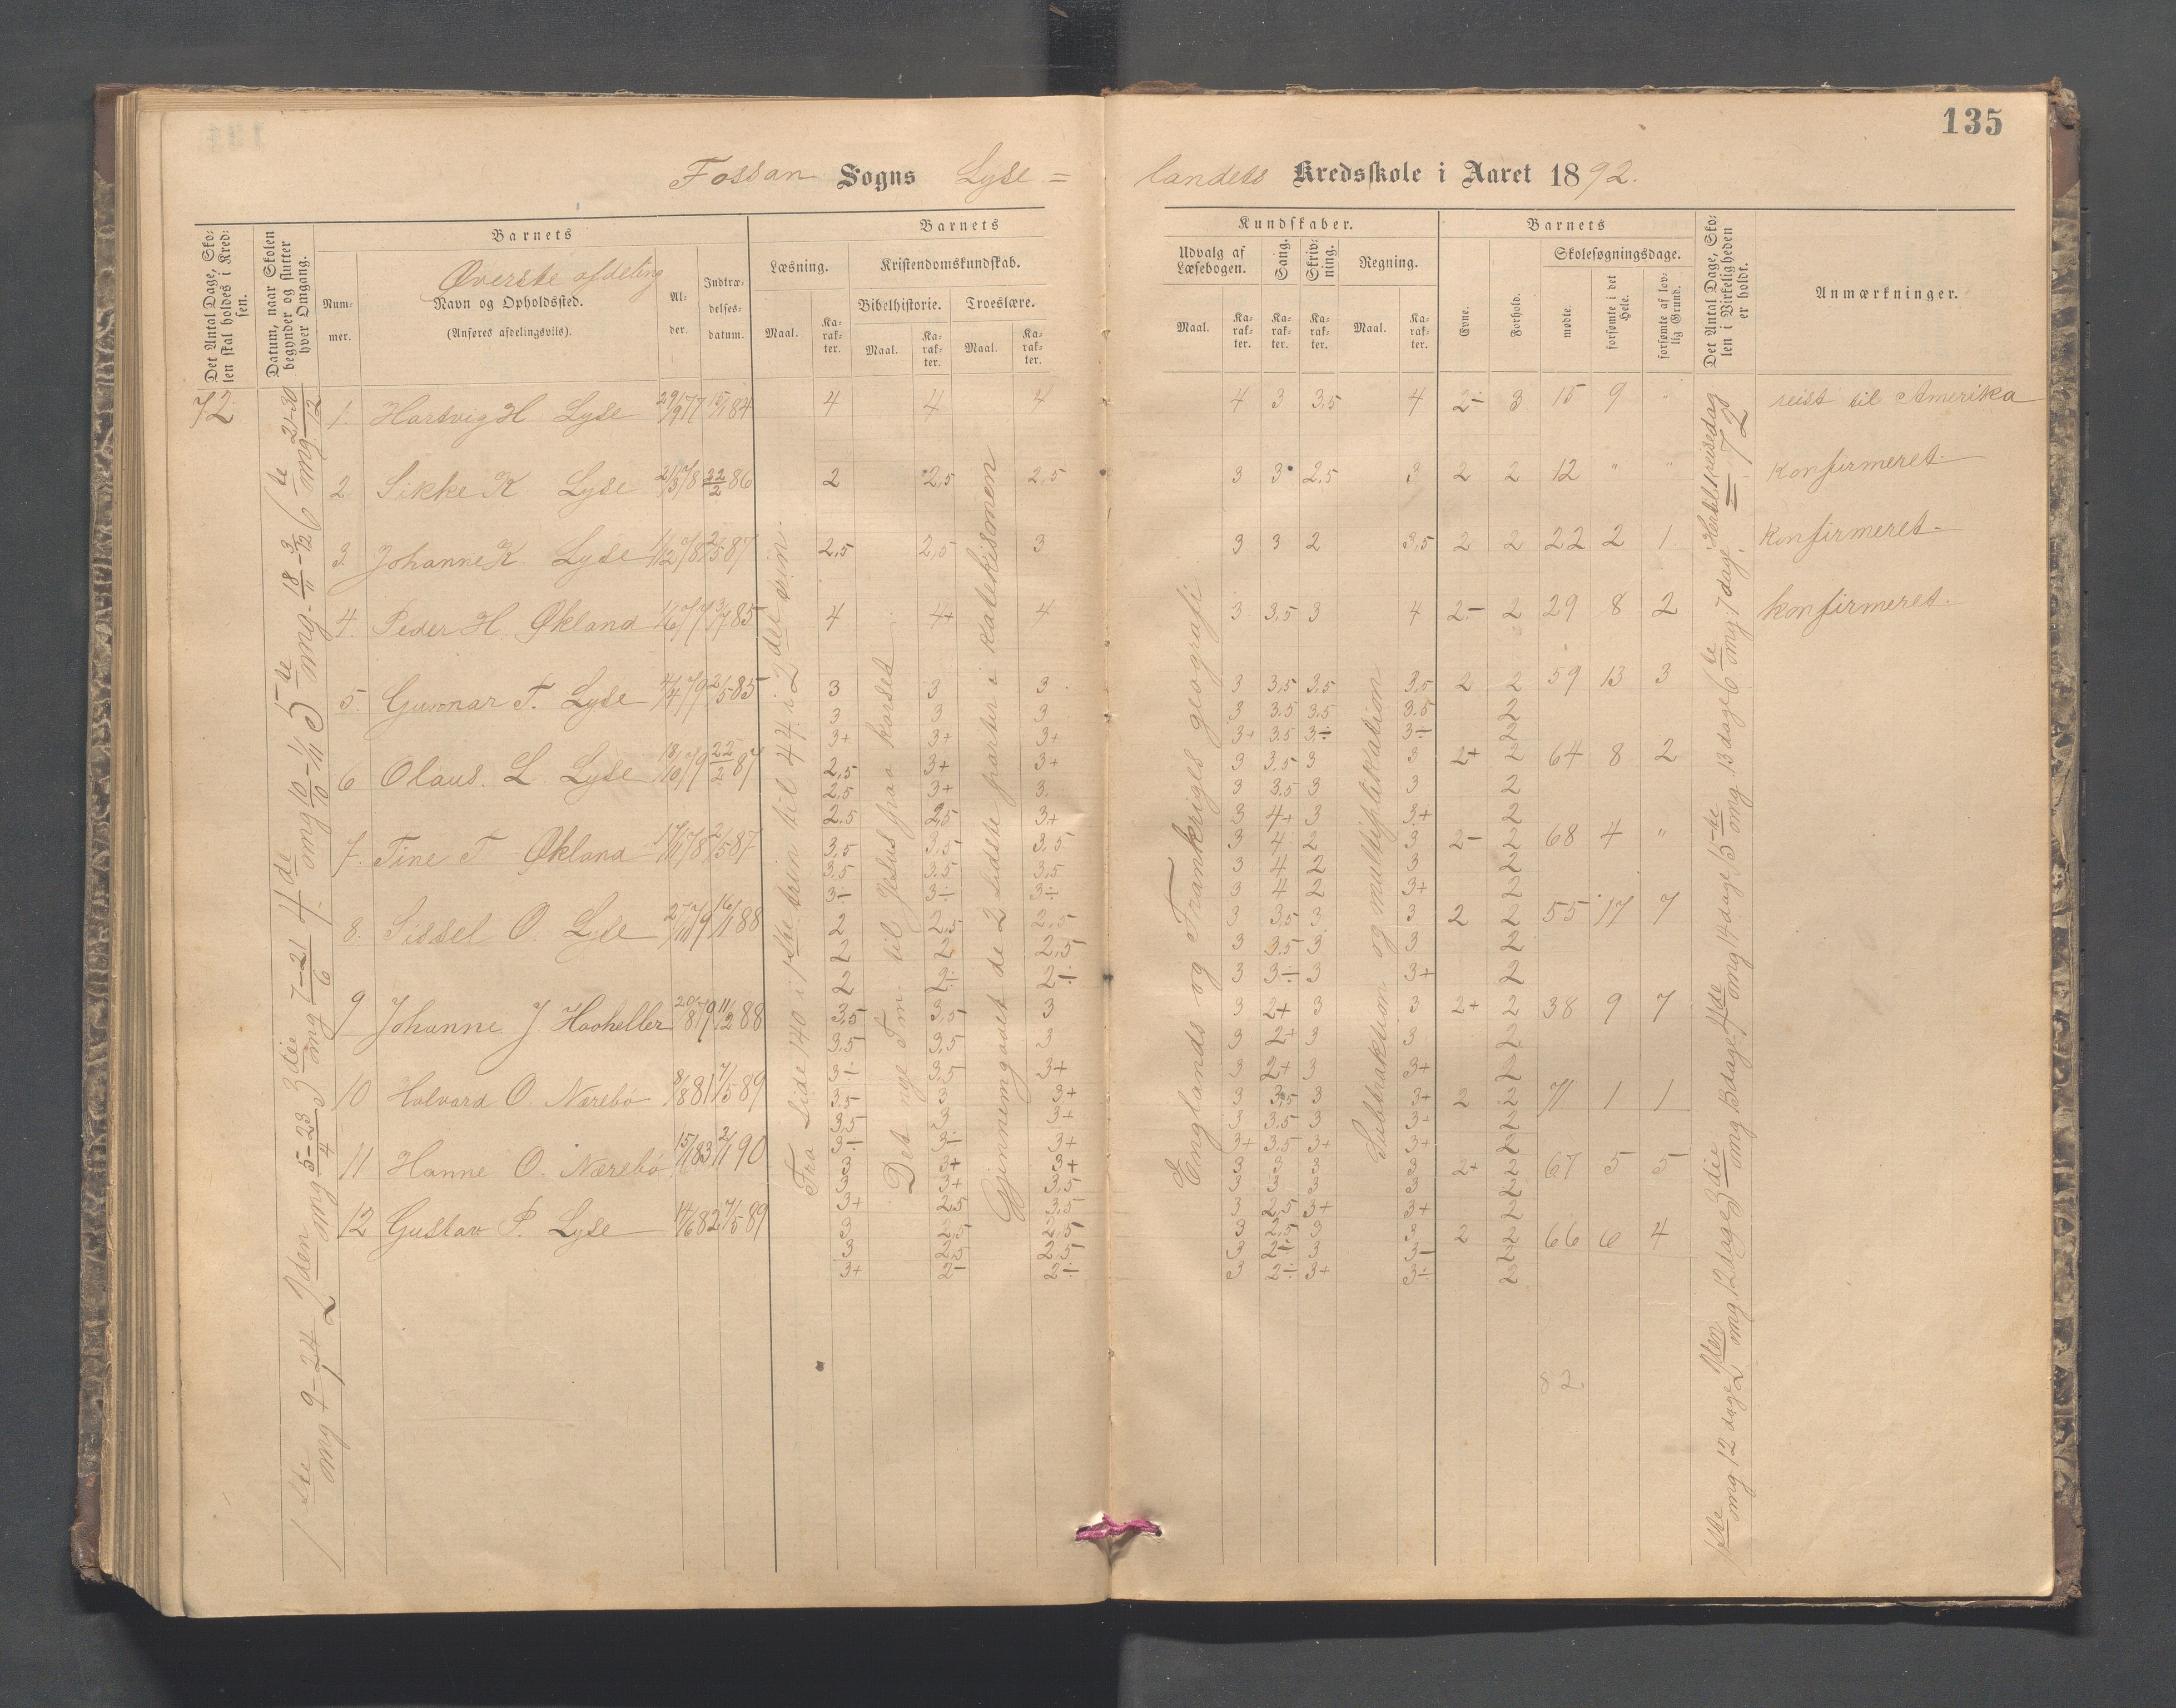 135
Fossan Sogns Lyse =
landets Kredsskole i Aaret 1892.
Det Antal Dage, Skolen skal holdes i Kredsen.
Datum, naar Skolen begynder og slutter hver Omgang.
Barnets
Nummer.
Øverste afdeling
Navn og Opholdssted.
(Anføres afdelingsviis).
Alder.
Indtrædelsesdatum.
Barnets
Læsning.
Kristendomskundskab.
Bibelhistorie.
Troeslære.
Maal.
Karakter.
Maal.
Karakter.
Maal.
Karakter.
Kundskaber.
Udvalg af Læsebogen.
Sang.
Skrivning.
Regning.
Maal.
Karakter.
Karakter.
Karakter.
Maal.
Karakter.
Barnets
Evne.
Forhold.
Skolesøgningsdage.
mødte.
forsømte i det Hele.
forsømte af lovlig Grund.
Det Antal Dage, Skolen i Virkeligheden er holdt.
Anmærkninger.
72
1 ste omg 9-24/1 2den omg 5-23/4 3die omg 7-21/6 4de omg 10/10-1/11 5te omg 18/11-3/12 6te omg 21-30/12
Fra Side 140 i 1ste trin til 44 i 2det trin.
Det nye Tm. til Jesus paa korset
Gjennemgaaet de 2 sidste parter i katekismen
Englands og Frankriges geografi
Subtraktion og multiplikation
1ste omg 12 dage 2den omg 12 dage 3die omg 13 dage 4de omg 14 dage 5te omg 13 dage 6te omg 7 dage
= 72
1. Hartvig H Lyse 29/9 77 15/1 84 4 4 4 4 3 3,5 4 2- 3 15 9 " reist til Amerika
2 Sikke K Lyse 21/3 78 22/2 86 2 2,5 2,5 3 3 2,5 3 2 2 12 " " Konfirmeret
3. Johanne K. Lyse 2/5 87 2,5 2,5 3 3 3 2 3,5 2 2 22 2 1 Konfirmeret
4. Peder H. Økland 85 4 4+ 4 3 3,5 3 4 2- 2 29 8 2 konfirmeret.
5. Gunnar T. Lyse 4/4 79 2/5 85 3 3 3 3 3,5 3,5 3,5 2 2 59 13 3
3 3 3 3 3.5 3.5 3.5 2
3+ 3+ 3+ 3+ 3.5 3÷ 3÷ 2
6 Olaus. L Lyse 18/10 79 22/2 87 2,5 3+ 3+ 3 3.5 3 3 2+ 2 64 8 2
2,5 3+ 3. 3 3.5 3 3 2
2.5 2,5 3+ 3 4+ 3 3+ 2
7. Tine T Økland 2/5 87 3,5 3,5 3,5 3 4 2 3 2- 2 68 4 "
3.5 3.5 3.5 3 4 2 3 2
3÷ 3÷ 3÷ 3 4 2 3+ 2
8. Sissel O. Lyse 27/11 79 16/1 88 2 2,5 2,5 3 3,5 3 3 2 2 55 17 7
2 2 2,5 3 3.5 3 3 2
2 2÷ 2÷ 3 3÷ 3 3+ 2
9 Johanne J Haaheller 20/8 79 11/2 88 3,5 3,5 3 3 2+ 3 3 2+ 2 38 9 7
3.5 3.5 3 3 2+ 3 3 2
3÷ 3.5 3+ 3 2+ 3 3+ 2
10 Halvard O. Nærebø 8/8 81 7/5 89 3.5 3 3+ 3 3,5 3 3+ 2 2 71 1 1
3.5 3 3+ 3 3.5 3 3÷ 2
3÷ 3÷ 3+ 3+ 3.5 3+ 3+ 2
11 Hanne O. Nærebø 15/1 83 2/1 90 3 3+ 3+ 3 3 3 3 2+ 2 67 5 5
3 3+ 3,5 3 3 3 3 2
3+ 2,5 3.5 3 2,5 3+ 3+ 2
12 Gustav P. Lyse 14/6 82 7/5 89 3 2,5 2,5 3 2,5 3 3 2 2 66 6 4
3 2.5 2.5 3 2÷ 3 3÷ 2
3+ 2÷ 2÷ 3 2÷ 3+ 3÷ 2